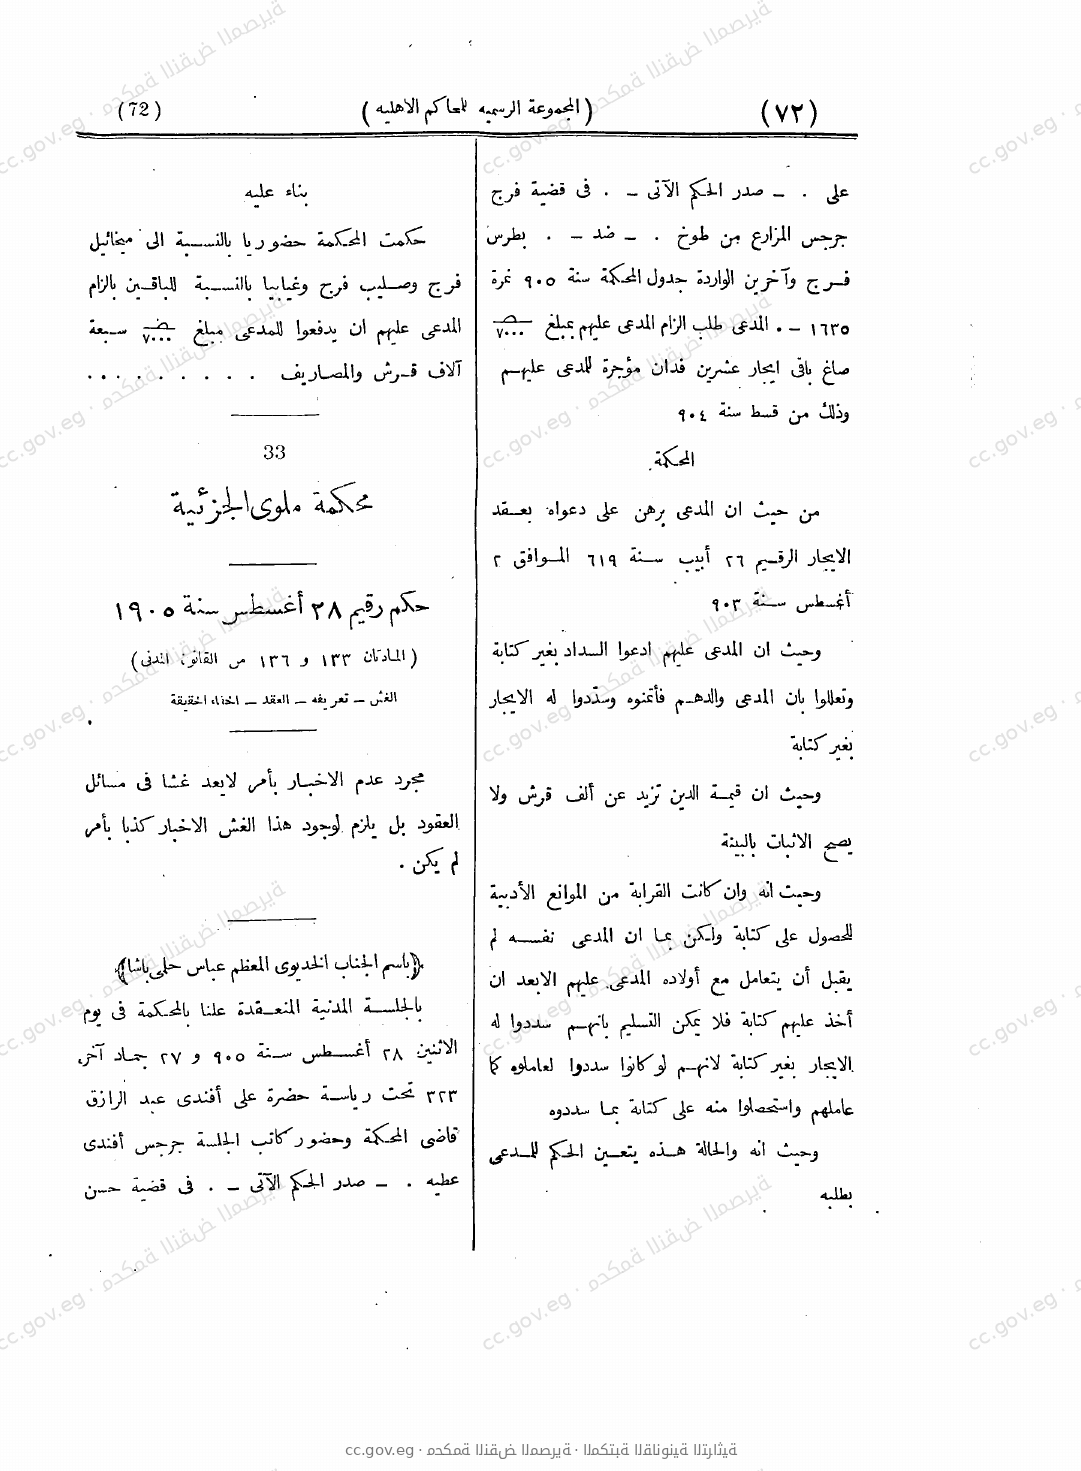 (٧٢) (المجموعة الرسميه للمحاكم الاهليه) (72)
على . ـ صدر الحكم الآتى ـ . فى قضية فرج
جرجس المزارع من طوخ . ـ ضد ـ . بطرس
فرج وآخرين الواردة جدول المحكمة سنة ٩٠٥ نمرة
١٦٣٥ ـ . المدعى طلب الزام المدعى عليهم بمبلغ ٧٠٠٠
صاغ باقى ايجار عشرين فدان مؤجرة للمدعى عليهم
وذلك من قسط سنة ٩٠٤
المحكمة
من حيث ان المدعى برهن على دعواه بعقد
الايجار الرقيم ٢٦ أبيب سنة ٦١٩ الموافق ٢
أغسطس سنة ٩٠٣
وحيث ان المدعى عليهم ادعوا السداد بغير كتابة
وتعللوا بان المدعى والدهم فأتمنوه وسدّدوا له الايجار
بغير كتابة
وحيث ان قيمة الدين تزيد عن ألف قرش ولا
يصح الاثبات بالبينة
وحيث انه وان كانت القرابة من الموانع الأدبية
للحصول على كتابة ولكن بما ان المدعى نفسه لم
يقبل أن يتعامل مع أولاده المدعى عليهم الابعد ان
أخذ عليهم كتابة فلا يمكن التسليم بانهم سددوا له
الايجار بغير كتابة لانهم لو كانوا سددوا لعاملوه كما
عاملهم واستحصلوا منه على كتابة بما سددوه
وحيث انه والحالة هذه يتعين الحكم للمدعى
بطلبه
بناء عليه
حكمت المحكمة حضوريا بالنسبة الى ميخائيل
فرج وصليب فرج وغيابيا بالنسبة للباقين بالزام
المدعى عليهم ان يدفعوا للمدعى مبلغ ٧٠٠٠ سبعة
آلاف قرش والمصاريف . . . . . . . . .
33
محكمة ملوى الجزئية
حكم رقيم ٢٨ أغسطس سنة ١٩٠٥
(المادتان ١٣٣ و ١٣٦ من القانون المدنى)
الغش ـ تعريفه ـ العقد ـ اخفاء الحقيقة
مجرد عدم الاخبار بأمر لايعد غشا فى مسائل
العقود بل يلزم لوجود هذا الغش الاخبار كذبا بأمر
لم يكن .
(باسم الجناب الخديوى المعظم عباس حلمى باشا)
بالجلسة المدنية المنعقدة علنا بالمحكمة فى يوم
الاثنين ٢٨ أغسطس سنة ٩٠٥ و ٢٧ جماد آخر
٣٢٣ تحت رياسة حضرة على أفندى عبد الرازق
قاضى المحكمة وحضور كاتب الجلسة جرجس أفندى
عطيه . ـ صدر الحكم الآتى ـ . فى قضية حسن
cc.gov.eg · محكمة النقض المصرية · المكتبة القانونية التراثية